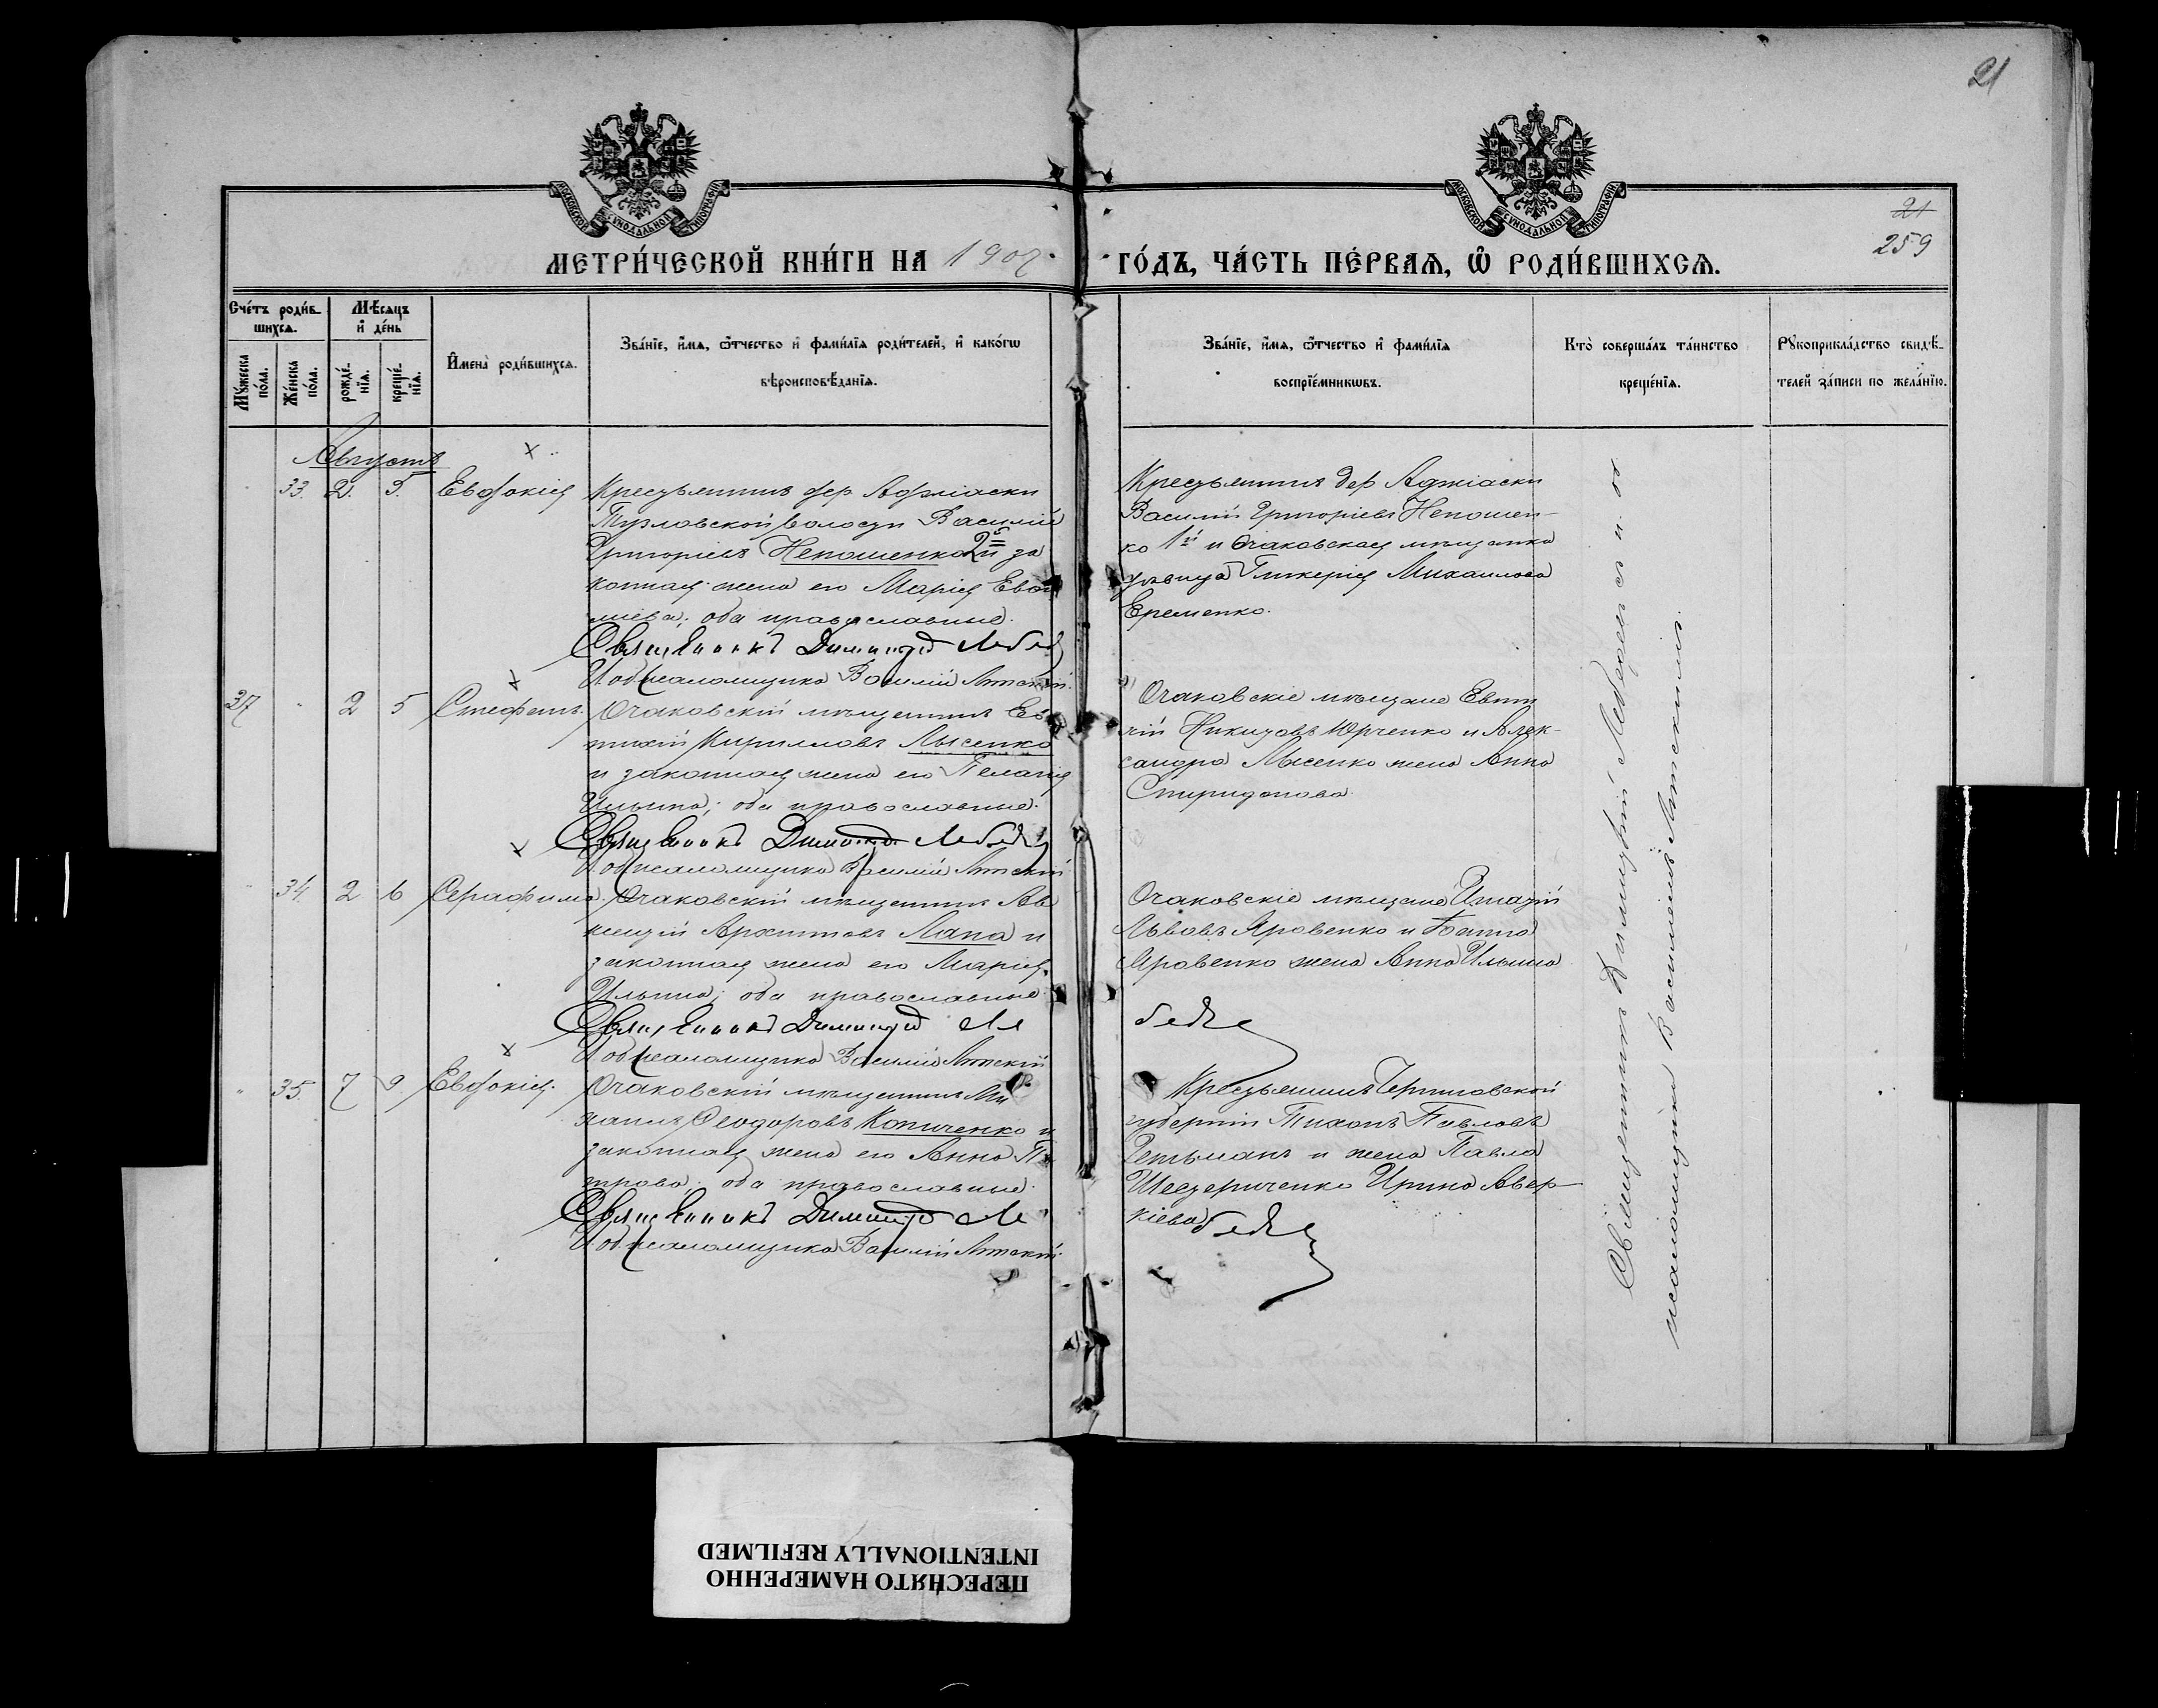 21
МОСКОВСКОЙ СѴНОДАЛЬНОЙ ТИПОГРАФІИ
МОСКОВСКОЙ СѴНОДАЛЬНОЙ ТИПОГРАФІИ
21
259
МЕТРИ́ЧЕСКОЙ КНИ́ГИ НА 1907
ГО́ДЪ, ЧА́СТЬ ПЕ́РВАЯ, Ѡ҆ РОДИ́ВШИХСЯ.
Сче́тъ роди́в-
шихся.
Мѣ́сяцъ
и҆ де́нь
Мꙋ́жеска по́ла.
Же́нска по́ла.
рожде́нїя.
креще́нїя.
И҆мена̀ роди́вшихся.
Зва́нїе, и҆́мя, ѻ҆́тчество и҆ фами́лїя роди́телей, и҆ како́гѡ
вѣроисповѣ́данїя.
Зва́нїе, и҆́мя, ѻ҆́тчество и҆ фами́лїя
воспрїе́мникѡвъ.
Кто̀ соверша́лъ та́инство
креще́нїя.
Рꙋкоприкла́дство свидѣ́-
телей за́писи по жела́нїю.
Августъ
33. 2. 5. Евдокія
Крестьянинъ дер Аджіаски
Тузловской волости Василій
Григоріевъ Непошенко 2й за
конная жена его Марія Евѳи
міева; оба православные.
Священникъ Димитрій Лебед
И. об. псаломщика Василій Лятскій.
Крестьянинъ дер Аджіаски
Василій Григоріевъ Непошен-
ко 1й и Очаковская мѣщанка
дѣвица Гликерія Михаилова
Еременко.
37 " 2 5 Стефанъ.
Очаковскій мѣщанинъ Ев
тихій Кирилловъ Лысенко
и законная жена его Пелагія
Ильина; оба православные.
Священникъ Димитрій Лебедев
И. об. псаломщика Василій Лятскій
Очаковскіе мѣщане Евти
хій Никитовъ Юрченко и Алек-
сандра Лысенко жена Анна
Спиридонова.
" 34. 2 6 Серафима.
Очаковскій мѣщанинъ Ав
ксентій Архиповъ Лапа и
законная жена его Марія
Ильина; оба православные
Священникъ Димитрій Ле
бедев
И. об. псаломщика Василій Лятскій
Очаковскіе мѣщане Игнатій
Львовъ Яровенко и
Яровенко жена Анна Ильина
" 35. 7 9 Евдокія.
Очаковскій мѣщанинъ Ми
хаилъ Ѳеодоровъ Копиченко и
законная жена его Анна Пе
трова; оба православные.
Священникъ Димитрій Ле
бедев
И. об. псаломщика Василій Лятскій.
Крестьянинъ Черниговской
губерніи Тихонъ Павловъ
Гетьманъ и жена Павла
Шестериченко Ирина Авер-
кіева
Священникъ Димитрій Лебедевъ съ и. об.
псаломщика Василіемъ Лятскимъ.
ПЕРЕСНЯТО НАМЕРЕННО
INTENTIONALLY REFILMED